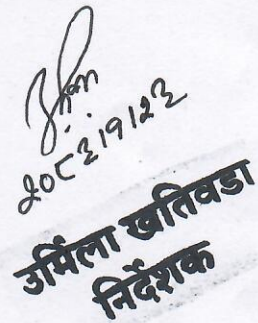 २०८२।९।२३
उर्मिला खतिवडा
निर्देशक